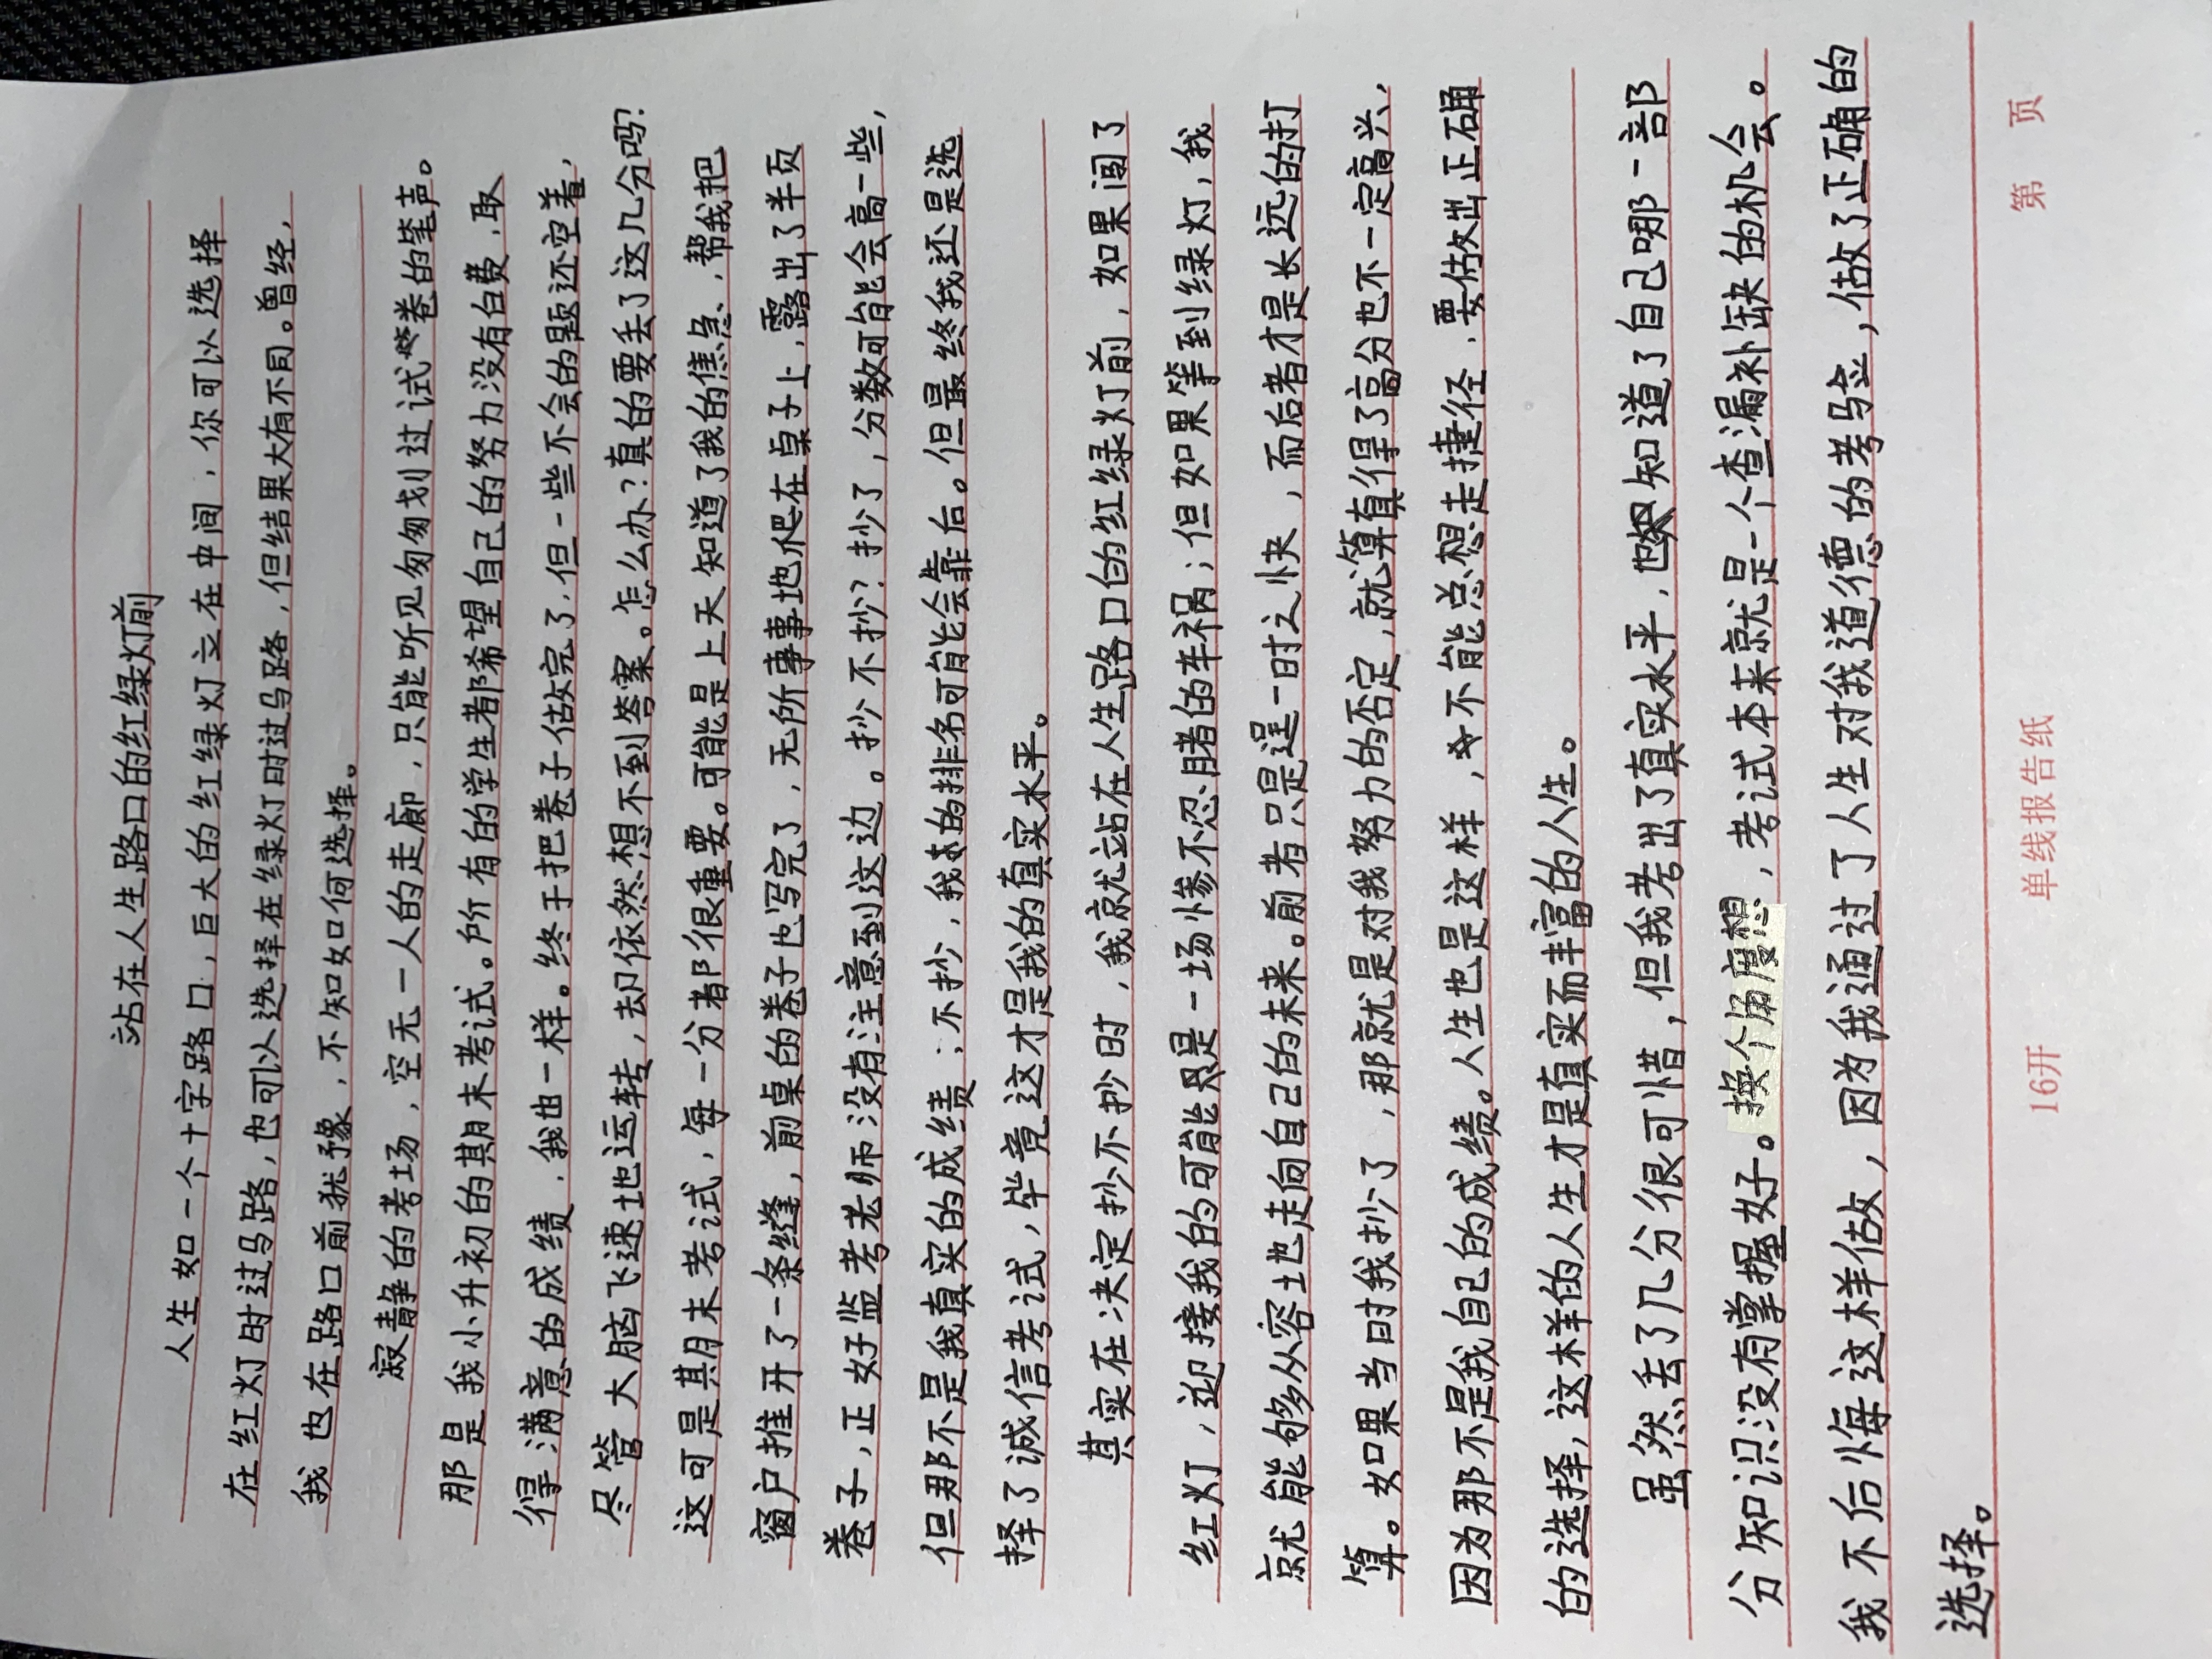 站在人生路口的红绿灯前
人生如一个十字路口，巨大的红绿灯立在中间，你可以选择
在红灯时过马路，也可以选择在绿灯时过马路，但结果大有不同。曾经，
我也在路口前犹豫，不知如何选择。
寂静的考场，空无一人的走廊，只能听见匆匆划过试卷的笔声。
那是我小升初的期末考试。所有的学生都希望自己的努力没有白费，取
得满意的成绩，我也一样。终于把卷子做完了，但一些不会的题还空着，
尽管大脑飞速地运转，却依然想不到答案。怎么办？真的要丢了这几分吗？
这可是期末考试，每一分都很重要。可能是上天知道了我的焦急，帮我把
窗户推开了一条缝，前桌的卷子也写完了，无所事事地爬在桌子上，露出了半页
卷子，正好监考老师没有注意到这边。抄不抄？抄了，分数可能会高一些，
但那不是我真实的成绩；不抄，我的排名可能会靠后。但最终我还是选
择了诚信考试，毕竟这才是我的真实水平。
其实在决定抄不抄时，我就站在人生路口的红绿灯前，如果闯了
红灯，迎接我的可能是一场惨不忍睹的车祸；但如果等到绿灯，我
就能够从容地走向自己的未来。前者只是逞一时之快，而后者才是长远的打
算。如果当时我抄了，那就是对我努力的否定，就算真得了高分也不一定高兴，
因为那不是我自己的成绩。人生也是这样，不能总想走捷径，要做出正确
的选择，这样的人生才是真实而丰富的人生。
虽然丢了几分很可惜，但我考出了真实水平，也知道了自己哪一部
分知识没有掌握好。换个角度想，考试本来就是一个查漏补缺的机会。
我不后悔这样做，因为我通过了人生对我道德的考验，做了正确的
选择。
16开 单线报告纸 第 页